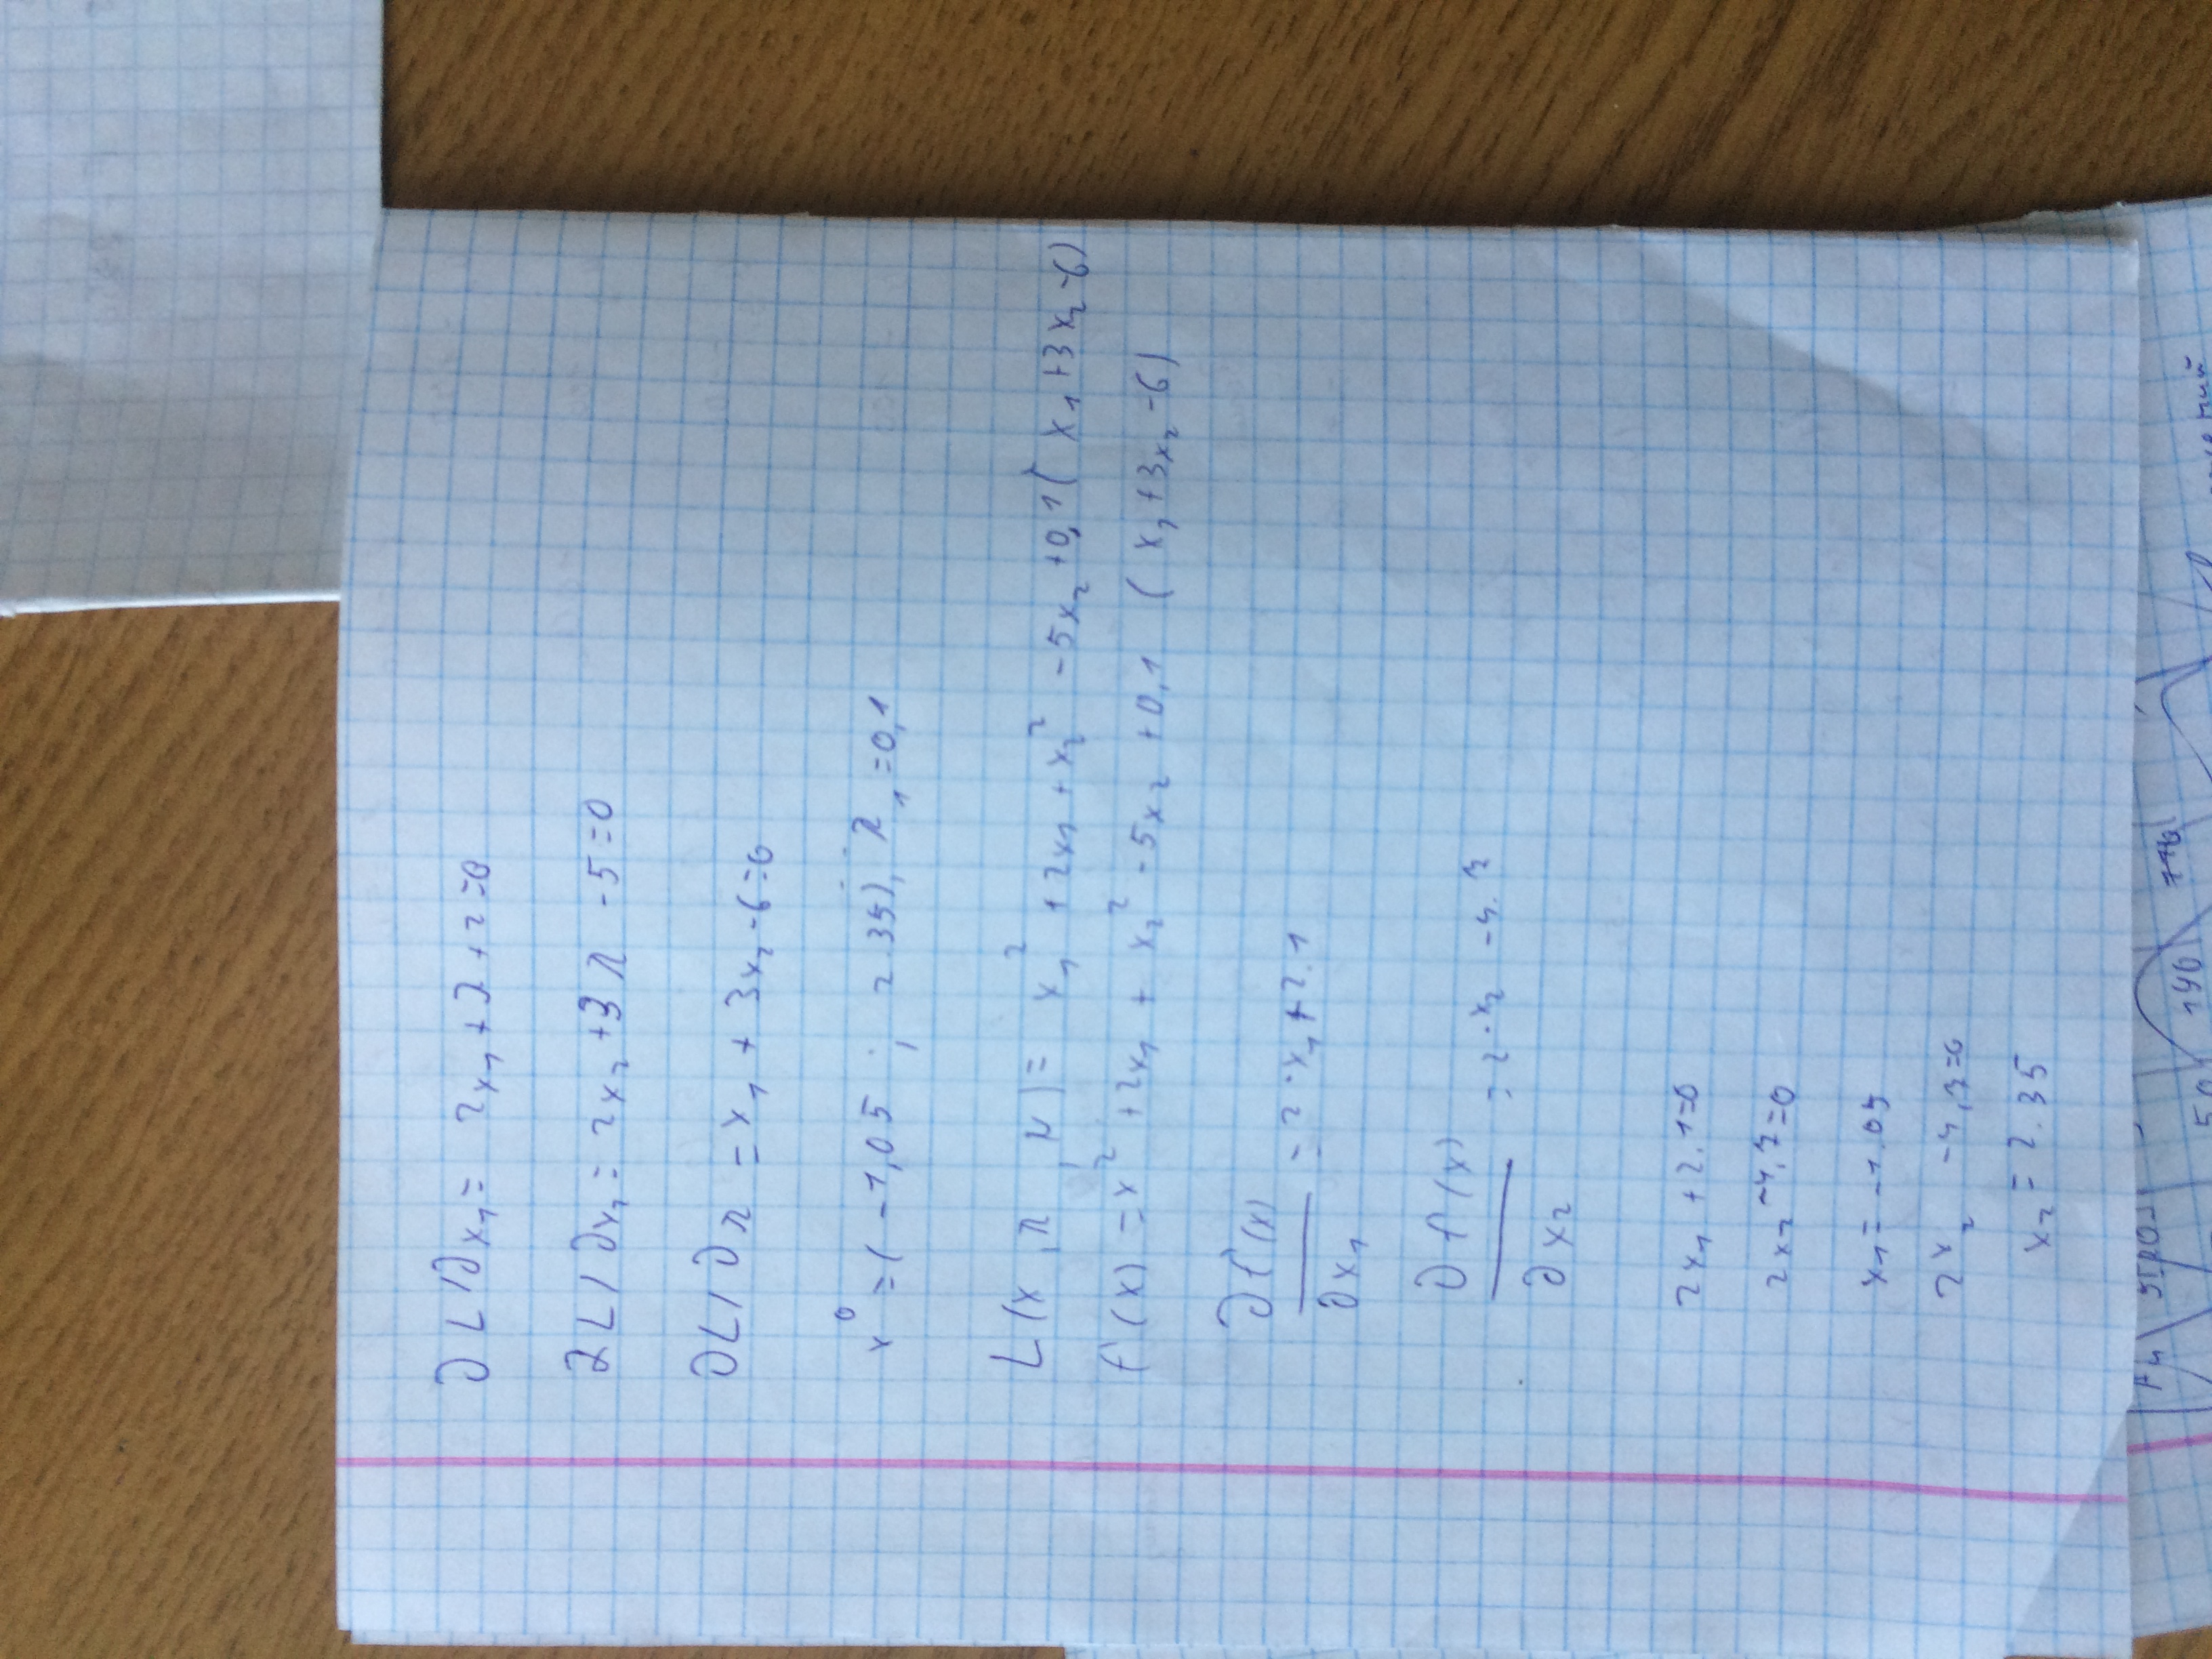 ∂L/∂x₁ = 2x₁ + λ + 2 = 0
∂L/∂x₂ = 2x₂ + 3λ - 5 = 0
∂L/∂λ = x₁ + 3x₂ - 6 = 0
x⁰ = (-1,05 ; 2.35), λ₁ = 0,1
L(x, λ, μ) = x₁² + 2x₁ + x₂² - 5x₂ + 0,1(x₁ + 3x₂ - 6)
f(x) = x² + 2x₁ + x₂² - 5x₂ + 0,1 (x₁ + 3x₂ - 6)
∂f(x)/∂x₁ = 2·x₁ + 2.1
∂f(x)/∂x₂ = 2·x₂ - 4.7
2x₁ + 2.1 = 0
2x₂ - 4,7 = 0
x₁ = -1.05
2x₂ - 4,7 = 0
x₂ = 2.35
50 140